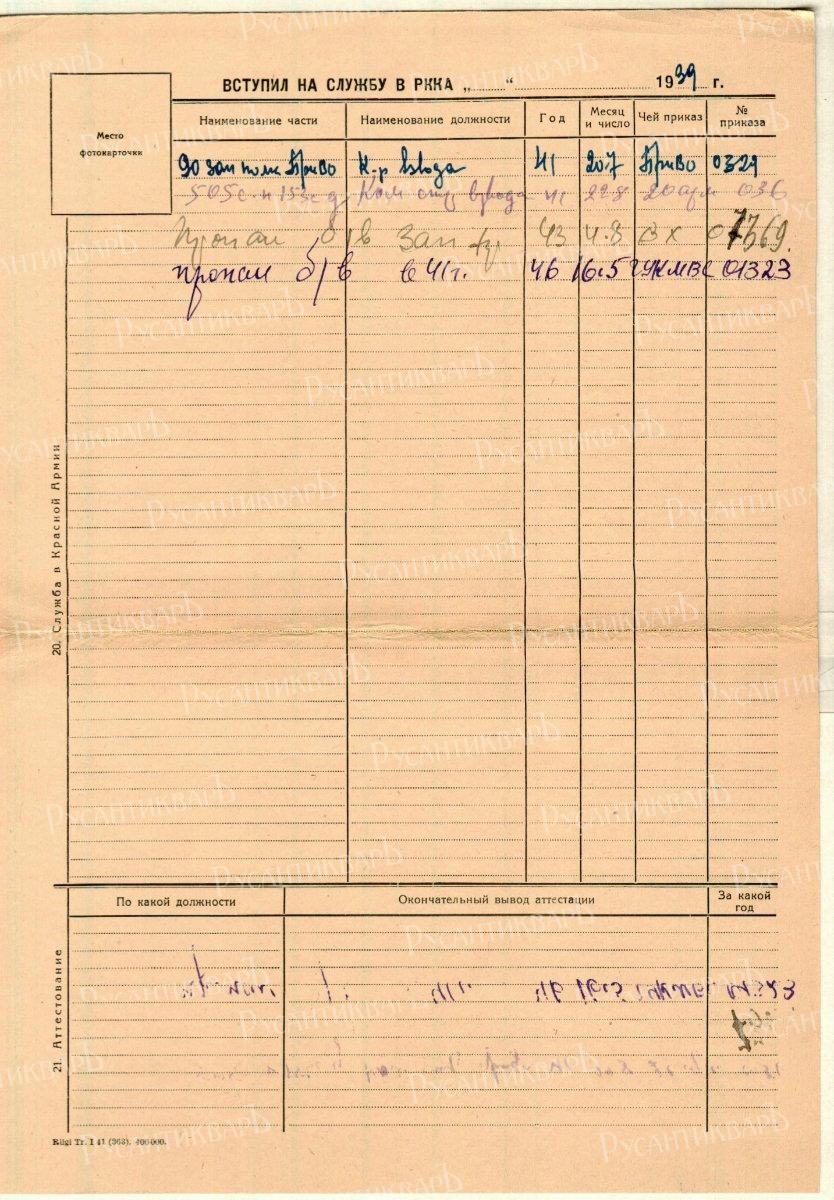 ВСТУПИЛ НА СЛУЖБУ В РККА „......“ 1939 г.
Место фотокарточки
Наименование части Наименование должности Год Месяц и число Чей приказ № приказа
90 зап полк ПриВО К-р взвода 41 20.7 ПриВО 0329
505 сп 153 сд Ком взвода 41 22.8 20 арм 036
Пропал б/в Зап 43 4.8 ЗФ
пропал б/в в 41 г. 46 16.5 ГУКМВС 01323
20. Служба в Красной Армии
По какой должности Окончательный вывод аттестации За какой год
21. Аттестование
Riigi Tr. I 41 (363). 400000.
РусантикварЪ